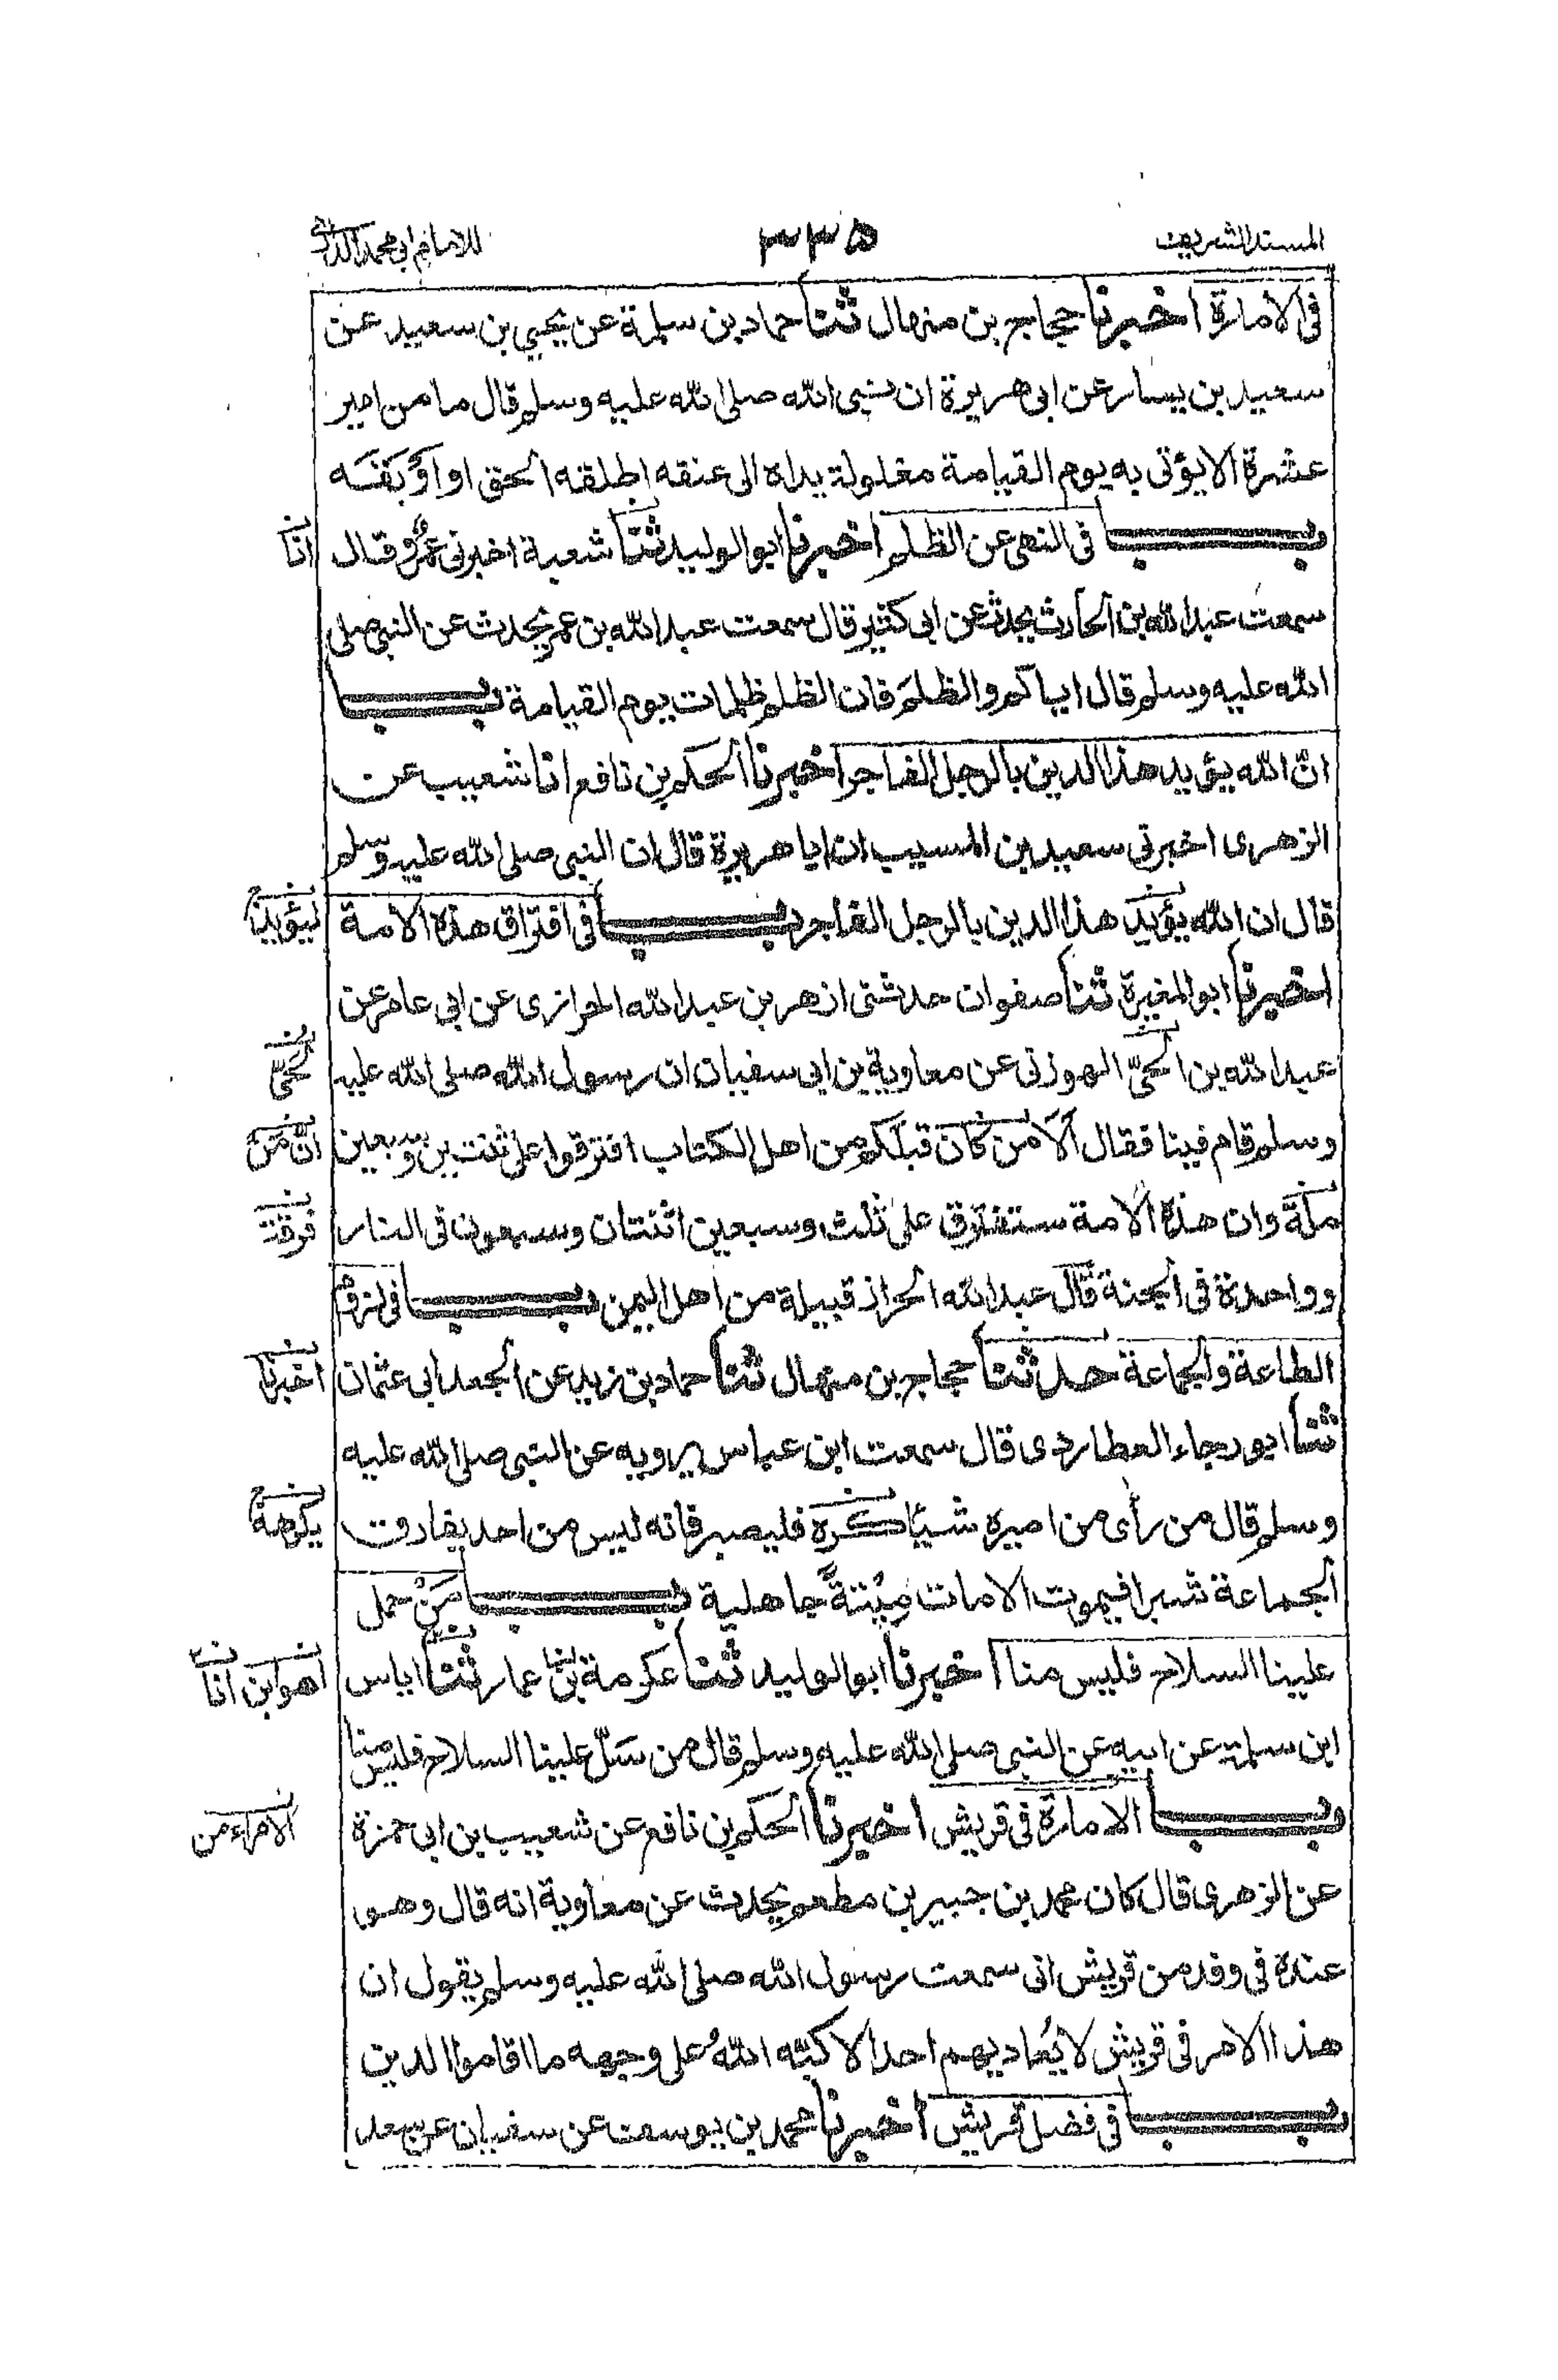 المسند الشريف ٣٣٥ للامام ابى محمد الدارمى
فى الامارة اخبرنا حجاج بن منهال ثنا حماد بن سلمة عن يحيى بن سعيد عن
سعيد بن يسار عن ابى هريرة ان نبى الله صلى الله عليه وسلم قال ما من امير
عشرة الا يؤتى به يوم القيامة مغلولة يداه الى عنقه اطلقه الحق او اوبقه
باب فى النهى عن الظلم اخبرنا ابو الوليد ثنا شعبة اخبرنى عمرو قال
انا
سمعت عبد الله بن الحارث يحدث عن ابى كثير قال سمعت عبد الله بن عمر يحدث عن النبى صلى
الله عليه وسلم قال اياكم والظلم فان الظلم ظلمات يوم القيامة باب
ان الله يؤيد هذا الدين بالرجل الفاجر اخبرنا الحكم بن نافع انا شعيب عن
الزهرى اخبرنى سعيد بن المسيب ان ابا هريرة قال ان النبى صلى الله عليه وسلم
قال ان الله يؤيد هذا الدين بالرجل الفاجر باب فى افتراق هذه الامة
ليؤيد
اخبرنا ابو المغيرة ثنا صفوان حدثنى ازهر بن عبد الله الحرازى عن ابى عامر عن
عبد الله بن الحىّ الهوزنى عن معاوية بن ابى سفيان ان رسول الله صلى الله عليه
لحىّ
وسلم قام فينا فقال ألا من كان قبلكم من اهل الكتاب افترقوا على ثنتين وسبعين
ان من
ملة وان هذه الامة ستفترق على ثلث وسبعين اثنتان وسبعون فى النار
فرقة
وواحدة فى الجنة قال عبد الله الحراز قبيلة من اهل اليمن باب فى لزوم
الطاعة والجماعة حدثنا حجاج بن منهال ثنا حماد بن زيد عن الجعد ابى عثمان
اخبرنا
ثنا ابو رجاء العطاردى قال سمعت ابن عباس يرويه عن النبى صلى الله عليه
وسلم قال من رأى من اميره شيئا كره فليصبر فانه ليس من احد يفارق
يكرهه
الجماعة شبرا فيموت الا مات مِيْتةً جاهلية باب مَنْ حمل
علينا السلاح فليس منا اخبرنا ابو الوليد ثنا عكرمة بن عمار ثنا اياس
اهو ابن انا
ابن سلمة عن ابيه عن النبى صلى الله عليه وسلم قال من سَلّ علينا السلاح فليس منا
باب الامارة فى قريش اخبرنا الحكم بن نافع عن شعيب بن ابى حمزة
الامراء من
عن الزهرى قال كان محمد بن جبير بن مطعم يحدث عن معاوية انه قال وهو
عنده فى وفد من قريش انى سمعت رسول الله صلى الله عليه وسلم يقول ان
هذا الامر فى قريش لا يُعاديهم احد الا كبّه اللهُ على وجهه ما اقاموا الدين
باب فى فضل قريش اخبرنا محمد بن يوسف عن سفيان عن سعد